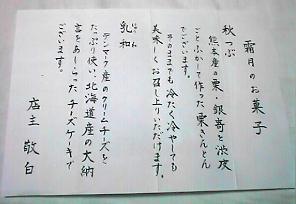 霜月のお菓子
秋つぶ
熊本産の栗、銀寄と渋皮
ごとふかして作った栗きんとん
でございます。
そのままでも冷たく冷やしても
美味しくお召し上りいただけます。
乳和
デンマーク産のクリームチーズを
たっぷり使い、北海道産の大納
言をあしらったチーズケーキで
ございます。
店主 敬白